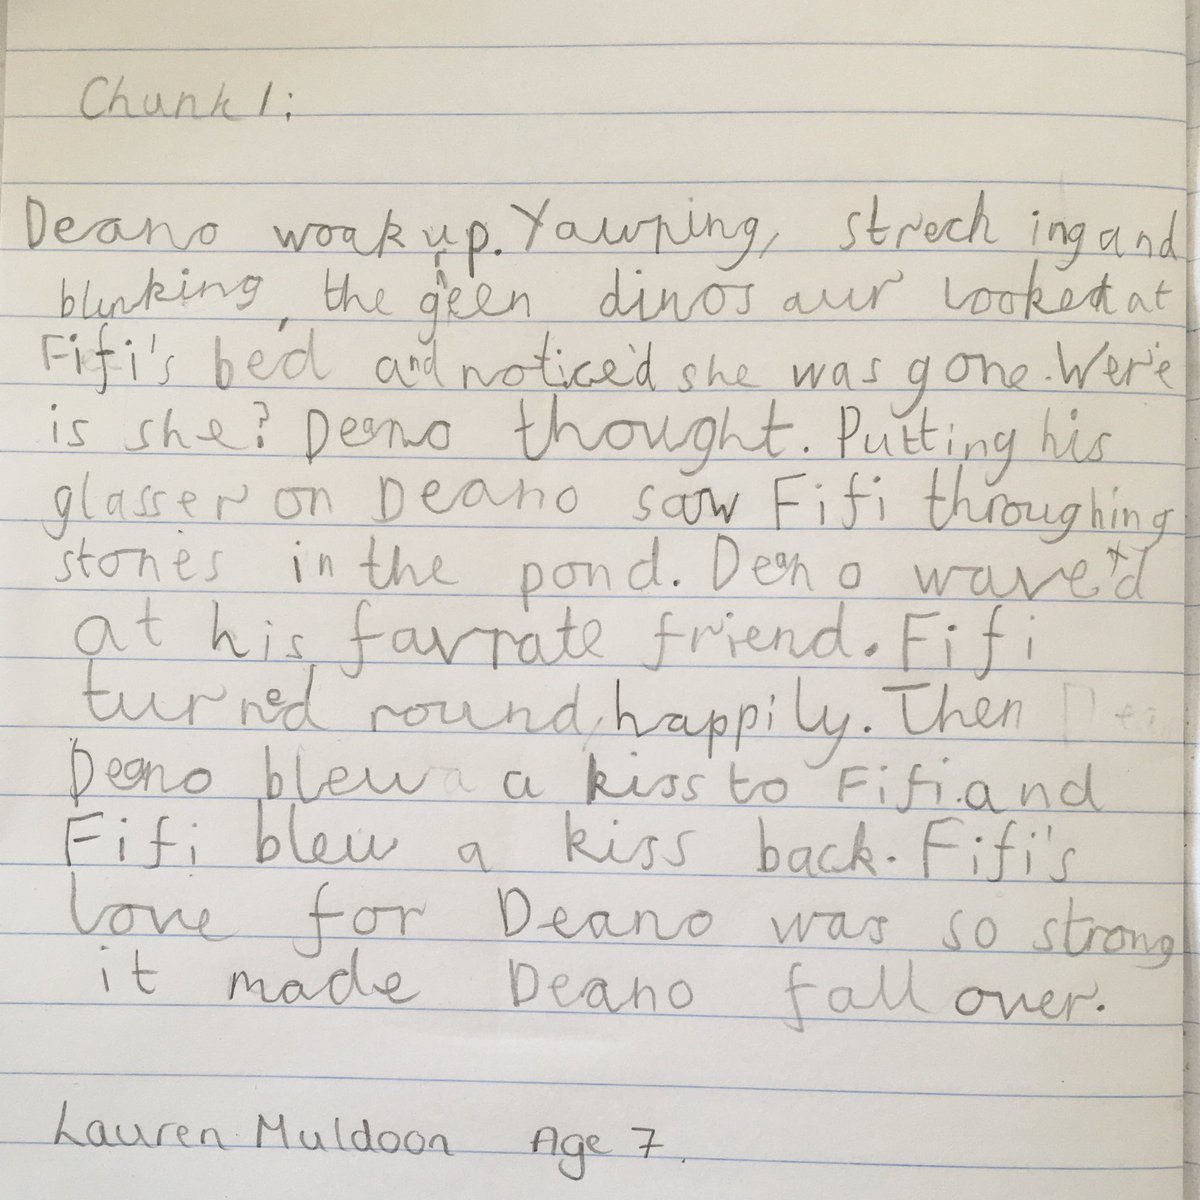 Chunk 1:
Deano woak up. Yawning, streching and
blinking, the green dinosaur looked at
Fifi's bed and notice'd she was gone. Were
is she? Deano thought. Putting his
glasser on Deano saw Fifi throughing
stones in the pond. Deano wave'd
at his favrate friend. Fifi
turned round happily. Then
Deano blew a kiss to Fifi and
Fifi blew a kiss back. Fifi's
love for Deano was so strong
it made Deano fall over.
Lauren Muldoon Age 7.